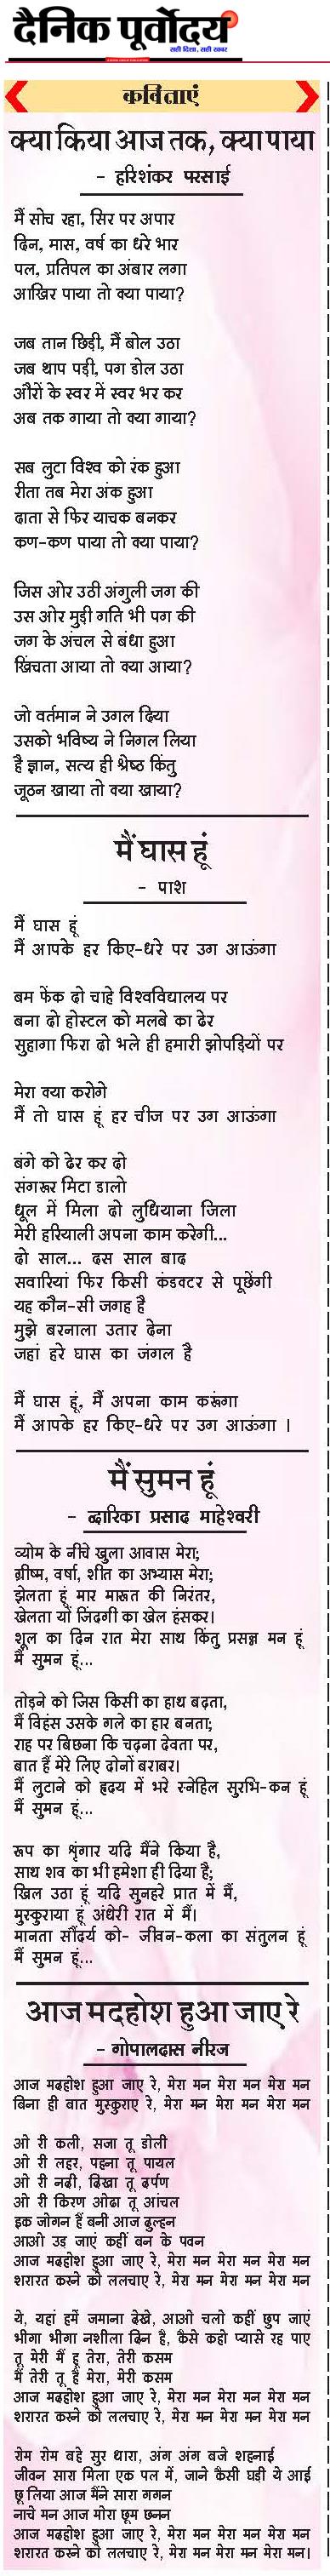 दैनिक पूर्वोदय
सही दिशा, सही खबर
कविताएं
क्या किया आज तक, क्या पाया
- हरिशंकर परसाई
मैं सोच रहा, सिर पर अपार
दिन, मास, वर्ष का धरे भार
पल, प्रतिपल का अंबार लगा
आखिर पाया तो क्या पाया?
जब तान छिड़ी, मैं बोल उठा
जब थाप पड़ी, पग डोल उठा
औरों के स्वर में स्वर भर कर
अब तक गाया तो क्या गाया?
सब लुटा विश्व को रंक हुआ
रीता तब मेरा अंक हुआ
दाता से फिर याचक बनकर
कण-कण पाया तो क्या पाया?
जिस ओर उठी अंगुली जग की
उस ओर मुड़ी गति भी पग की
जग के अंचल से बंधा हुआ
खिंचता आया तो क्या आया?
जो वर्तमान ने उगल दिया
उसको भविष्य ने निगल लिया
है ज्ञान, सत्य ही श्रेष्ठ किंतु
जूठन खाया तो क्या खाया?
मैं घास हूं
- पाश
मैं घास हूं
मैं आपके हर किए-धरे पर उग आऊंगा
बम फेंक दो चाहे विश्वविद्यालय पर
बना दो होस्टल को मलबे का ढेर
सुहागा फिरा दो भले ही हमारी झोपड़ियों पर
मेरा क्या करोगे
मैं तो घास हूं हर चीज पर उग आऊंगा
बंगे को ढेर कर दो
संगरूर मिटा डालो
धूल में मिला दो लुधियाना जिला
मेरी हरियाली अपना काम करेगी...
दो साल... दस साल बाद
सवारियां फिर किसी कंडक्टर से पूछेंगी
यह कौन-सी जगह है
मुझे बरनाला उतार देना
जहां हरे घास का जंगल है
मैं घास हूं, मैं अपना काम करूंगा
मैं आपके हर किए-धरे पर उग आऊंगा ।
मैं सुमन हूं
- द्वारिका प्रसाद माहेश्वरी
व्योम के नीचे खुला आवास मेरा;
ग्रीष्म, वर्षा, शीत का अभ्यास मेरा;
झेलता हूं मार मारूत की निरंतर,
खेलता यों जिंदगी का खेल हंसकर।
शूल का दिन रात मेरा साथ किंतु प्रसन्न मन हूं
मैं सुमन हूं...
तोड़ने को जिस किसी का हाथ बढ़ता,
मैं विहंस उसके गले का हार बनता;
राह पर बिछना कि चढ़ना देवता पर,
बात हैं मेरे लिए दोनों बराबर।
मैं लुटाने को हृदय में भरे स्नेहिल सुरभि-कन हूं
मैं सुमन हूं...
रूप का श्रृंगार यदि मैंने किया है,
साथ शव का भी हमेशा ही दिया है;
खिल उठा हूं यदि सुनहरे प्रात में मैं,
मुस्कुराया हूं अंधेरी रात में मैं।
मानता सौंदर्य को- जीवन-कला का संतुलन हूं
मैं सुमन हूं...
आज मदहोश हुआ जाए रे
- गोपालदास नीरज
आज मदहोश हुआ जाए रे, मेरा मन मेरा मन मेरा मन
बिना ही बात मुस्कुराए रे, मेरा मन मेरा मन मेरा मन
ओ री कली, सजा तू डोली
ओ री लहर, पहना तू पायल
ओ री नदी, दिखा तू दर्पण
ओ री किरण ओढा तू आंचल
इक जोगन हैं बनी आज दुल्हन
आओ उड़ जाएं कहीं बन के पवन
आज मदहोश हुआ जाए रे, मेरा मन मेरा मन मेरा मन
शरारत करने को ललचाए रे, मेरा मन मेरा मन मेरा मन
ये, यहां हमें जमाना देखे, आओ चलो कहीं छुप जाएं
भीगा भीगा नशीला दिन है, कैसे कहो प्यासे रह पाए
तू मेरी मैं हू तेरा, तेरी कसम
मैं तेरी तू है मेरा, मेरी कसम
आज मदहोश हुआ जाए रे, मेरा मन मेरा मन मेरा मन
शरारत करने को ललचाए रे, मेरा मन मेरा मन मेरा मन
रोम रोम बहे सुर धारा, अंग अंग बजे शहनाई
जीवन सारा मिला एक पल में, जाने कैसी घड़ी ये आई
छू लिया आज मैंने सारा गगन
नाचे मन आज मोरा छूम छनन
आज मदहोश हुआ जाए रे, मेरा मन मेरा मन मेरा मन
शरारत करने को ललचाए रे, मेरा मन मेरा मन मेरा मन।